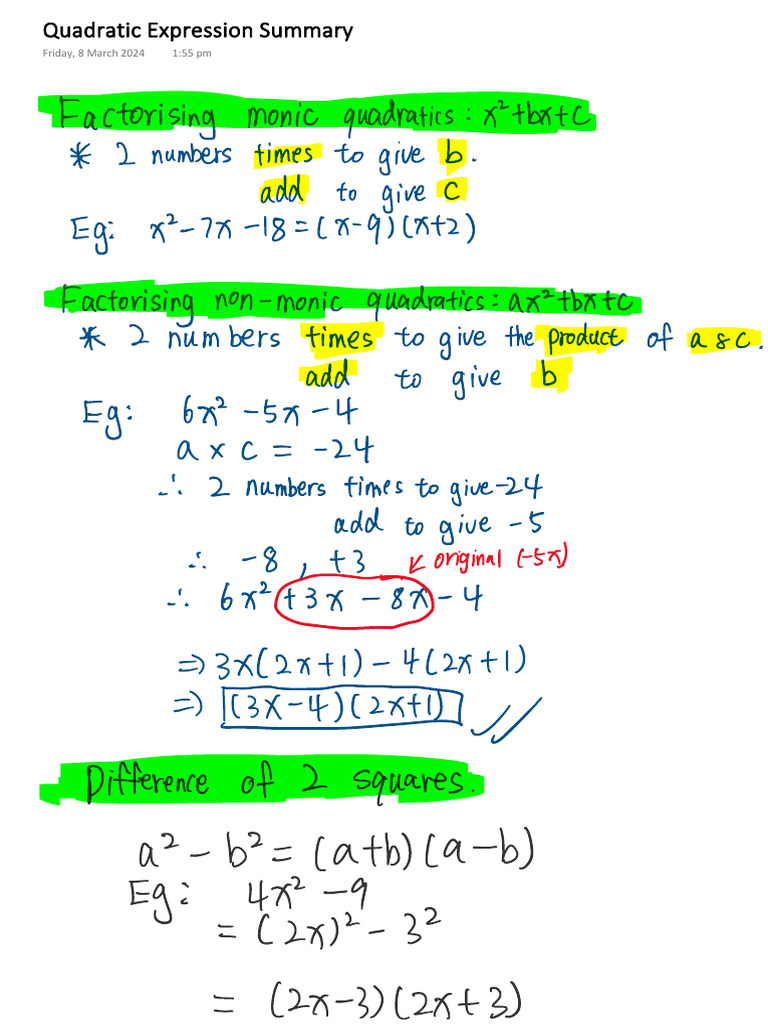 Quadratic Expression Summary
Friday, 8 March 2024 1:55 pm
Factorising monic quadratics: x²+bx+c
* 2 numbers times to give b.
add to give c
Eg: x²-7x-18=(x-9)(x+2)
Factorising non-monic quadratics: ax²+bx+c
* 2 numbers times to give the product of a & c.
add to give b
Eg: 6x² -5x -4
a × c = -24
∴ 2 numbers times to give -24
add to give -5
∴ -8 , +3 ↙ original (-5x)
∴ 6x² +3x - 8x - 4
⇒ 3x(2x+1) - 4(2x+1)
⇒ (3x-4)(2x+1)
Difference of 2 squares.
a² - b² = (a+b)(a-b)
Eg: 4x² -9
= (2x)² - 3²
= (2x-3)(2x+3)